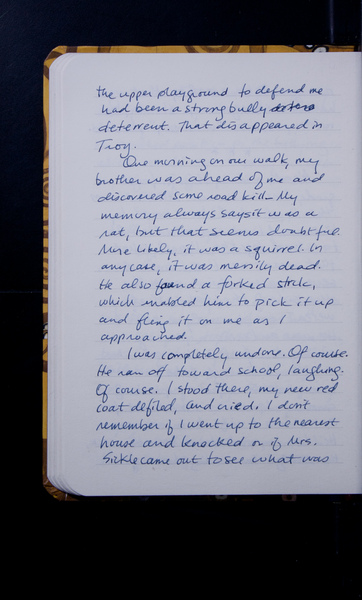 the upper playground to defend me
had been a strong bully
deterrent. That disappeared in
Troy.
One morning on our walk, my
brother was ahead of me and
discovered some road kill. My
memory always says it was a
rat, but that seems doubtful.
More likely, it was a squirrel. In
any case, it was messily dead.
He also found a forked stick,
which enabled him to pick it up
and fling it on me as I
approached.
I was completely undone. Of course.
He ran off toward school, laughing.
Of course. I stood there, my new red
coat defiled, and cried. I don't
remember if I went up to the nearest
house and knocked or if Mrs.
Sickle came out to see what was